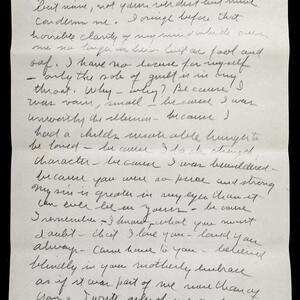 but mine, not your verdict but mine
condemn me. I cringe before that
horrible clarity of my mind which
me no longer as hero but as fool and
oaf. I have no excuse for myself
- only the sob of guilt is in my
throat. Why - why? Because I
was vain, small! because I was
unworthy because I
had a child's insatiable hunger to
be loved - because I
character - because I was bewildered -
because you were so pure and strong
my sin is greater in my eyes than it
can ever be in yours - because
I remember & I know what you must
doubt - that I love you - loved you
always - came back to you - believed
blindly in your motherly embrace
as if it was part of we